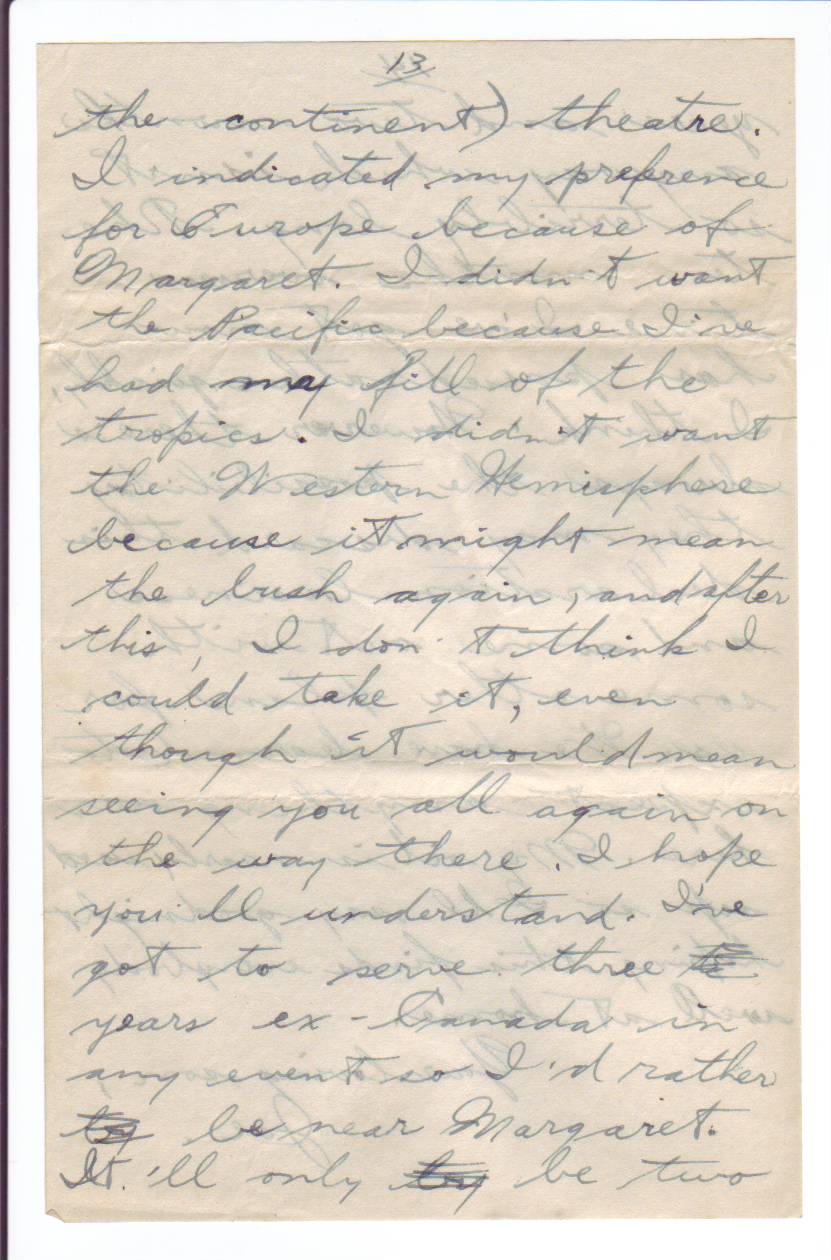 13
the continent) theatre.
I indicated my prefrence
for Europe because of
Margaret. I didn't want
the Pacific because I've
had my fill of the
tropics. I didn't want
the Western Hemisphere
because it might mean
the bush again, and after
this, I don't think I
could take it, even
though it would mean
seeing you all again on
the way there. I hope
you'll understand. I've
got to serve three
years ex-Canada in
any event so I'd rather
be near Margaret.
It'll only be two